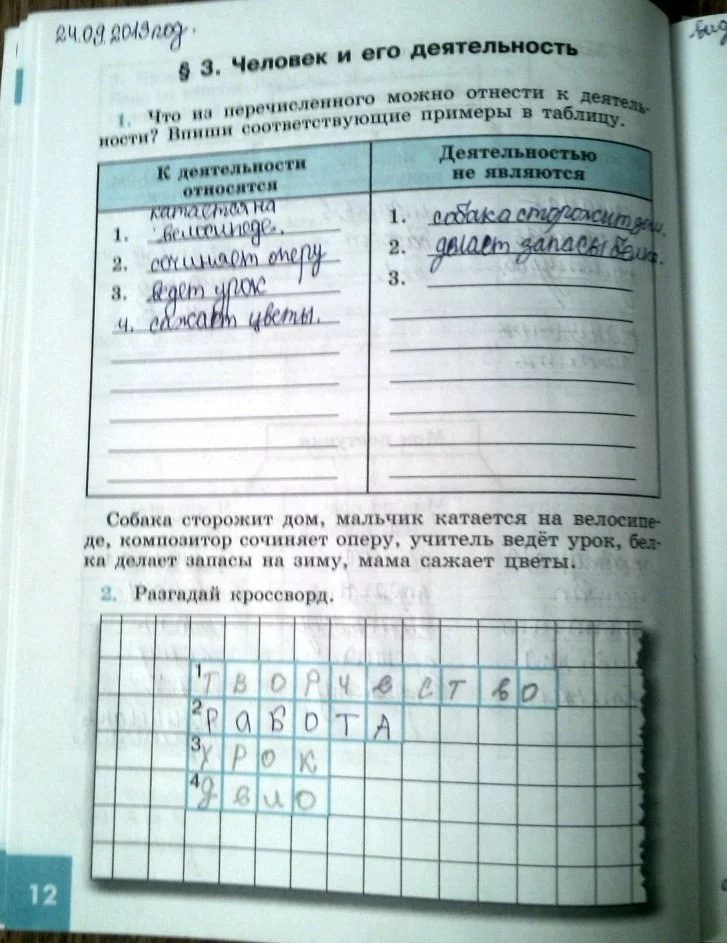 24.09.2019год.
вид
§ 3. Человек и его деятельность
1. Что из перечисленного можно отнести к деятель-
ности? Впиши соответствующие примеры в таблицу.
К деятельности
относятся
Деятельностью
не являются
катается на
1. велосипеде.
2. сочиняет оперу
3. ведет урок
4. сажает цветы.
1. собака сторожит дом.
2. делает запасы белка.
3.
Собака сторожит дом, мальчик катается на велосипе-
де, композитор сочиняет оперу, учитель ведёт урок, бел-
ка делает запасы на зиму, мама сажает цветы.
2. Разгадай кроссворд.
1 Т В О Р Ч Е С Т В О
2 Р А Б О Т А
3 У Р О К
4 Д Е Л О
12